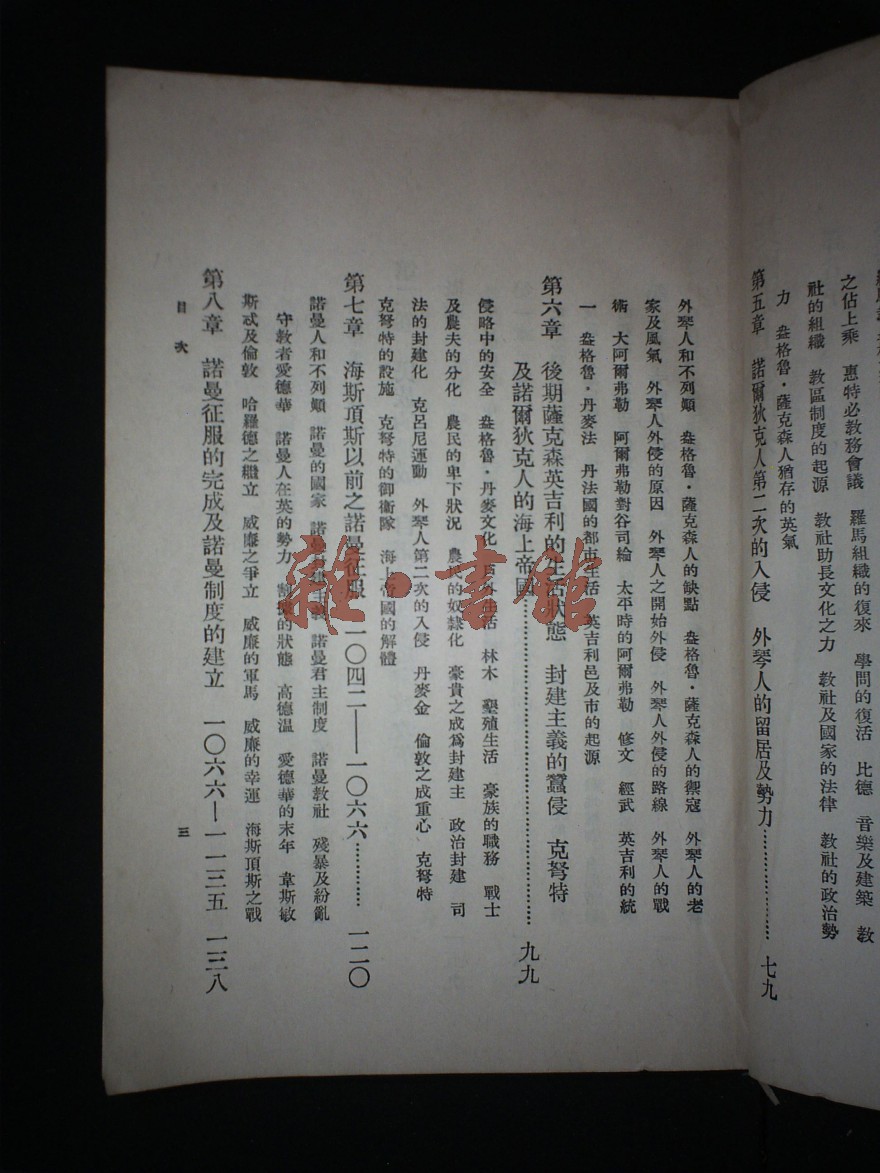 之佔上乘 惠特必教務會議 羅馬組織的復來 學問的復活 比德 音樂及建築 教
社的組織 教區制度的起源 教社助長文化之力 教社及國家的法律 教社的政治勢
力 盎格魯·薩克森人猶存的英氣
第五章 諾爾狄克人第二次的入侵 外琴人的留居及勢力……………… 七九
外琴人和不列顚 盎格魯·薩克森人的缺點 盎格魯·薩克森人的禦寇 外琴人的老
家及風氣 外琴人外侵的原因 外琴人之開始外侵 外琴人外侵的路線 外琴人的戰
術 大阿爾弗勒 阿爾弗勒對谷司綸 太平時的阿爾弗勒 修文 經武 英吉利的統
一 盎格魯·丹麥法 丹法國的都市生活 英吉利邑及市的起源
第六章 後期薩克森英吉利的生活狀態 封建主義的蠶侵 克弩特
及諾爾狄克人的海上帝國…………………………………… 九九
侵略中的安全 盎格魯·丹麥文化 戶外生活 林木 墾殖生活 豪族的職務 戰士
及農夫的分化 農民的卑下狀況 農民的奴隸化 豪貴之成爲封建主 政治封建 司
法的封建化 克呂尼運動 外琴人第二次的入侵 丹麥金 倫敦之成重心 克弩特
克弩特的設施 克弩特的御衛隊 海上帝國的解體
第七章 海斯頂斯以前之諾曼征服 一〇四二——一〇六六…………… 一二〇
諾曼人和不列顚 諾曼的國家 諾曼封建主義 諾曼君主制度 諾曼教社 殘暴及紛亂
守教者愛德華 諾曼人在英的勢力 割據的狀態 高德溫 愛德華的末年 韋斯敏
斯忒及倫敦 哈羅德之繼立 威廉之爭立 威廉的軍馬 威廉的幸運 海斯頂斯之戰
第八章 諾曼征服的完成及諾曼制度的建立 一〇六六—一一三五 一三八
目次
三
雜·書館